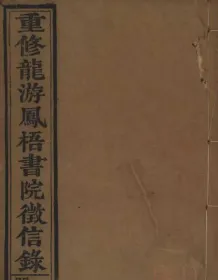 重修龍游鳳梧書院徵信錄